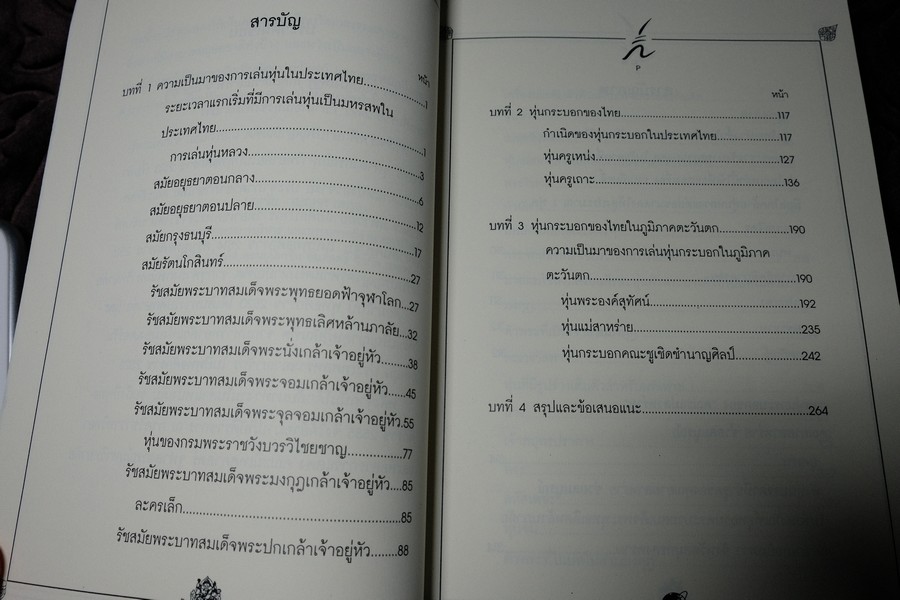 สารบัญ
หน้า
บทที่ 1 ความเป็นมาของการเล่นหุ่นในประเทศไทย....................1
ระยะเวลาแรกเริ่มที่มีการเล่นหุ่นเป็นมหรสพใน
ประเทศไทย....................1
การเล่นหุ่นหลวง....................3
สมัยอยุธยาตอนกลาง....................6
สมัยอยุธยาตอนปลาย....................12
สมัยกรุงธนบุรี....................17
สมัยรัตนโกสินทร์....................27
รัชสมัยพระบาทสมเด็จพระพุทธยอดฟ้าจุฬาโลก...27
รัชสมัยพระบาทสมเด็จพระพุทธเลิศหล้านภาลัย...32
รัชสมัยพระบาทสมเด็จพระนั่งเกล้าเจ้าอยู่หัว......38
รัชสมัยพระบาทสมเด็จพระจอมเกล้าเจ้าอยู่หัว.....45
รัชสมัยพระบาทสมเด็จพระจุลจอมเกล้าเจ้าอยู่หัว.55
หุ่นของกรมพระราชวังบวรวิไชยชาญ................77
รัชสมัยพระบาทสมเด็จพระมงกุฎเกล้าเจ้าอยู่หัว....85
ละครเล็ก....................85
รัชสมัยพระบาทสมเด็จพระปกเกล้าเจ้าอยู่หัว........88
P
หน้า
บทที่ 2 หุ่นกระบอกของไทย....................117
กำเนิดของหุ่นกระบอกในประเทศไทย................117
หุ่นครูเหน่ง....................127
หุ่นครูเถาะ....................136
บทที่ 3 หุ่นกระบอกของไทยในภูมิภาคตะวันตก....................190
ความเป็นมาของการเล่นหุ่นกระบอกในภูมิภาค
ตะวันตก....................190
หุ่นพระองค์สุทัศน์....................192
หุ่นแม่สาหร่าย....................235
หุ่นกระบอกคณะชูเชิดชำนาญศิลป์....................242
บทที่ 4 สรุปและข้อเสนอแนะ....................264